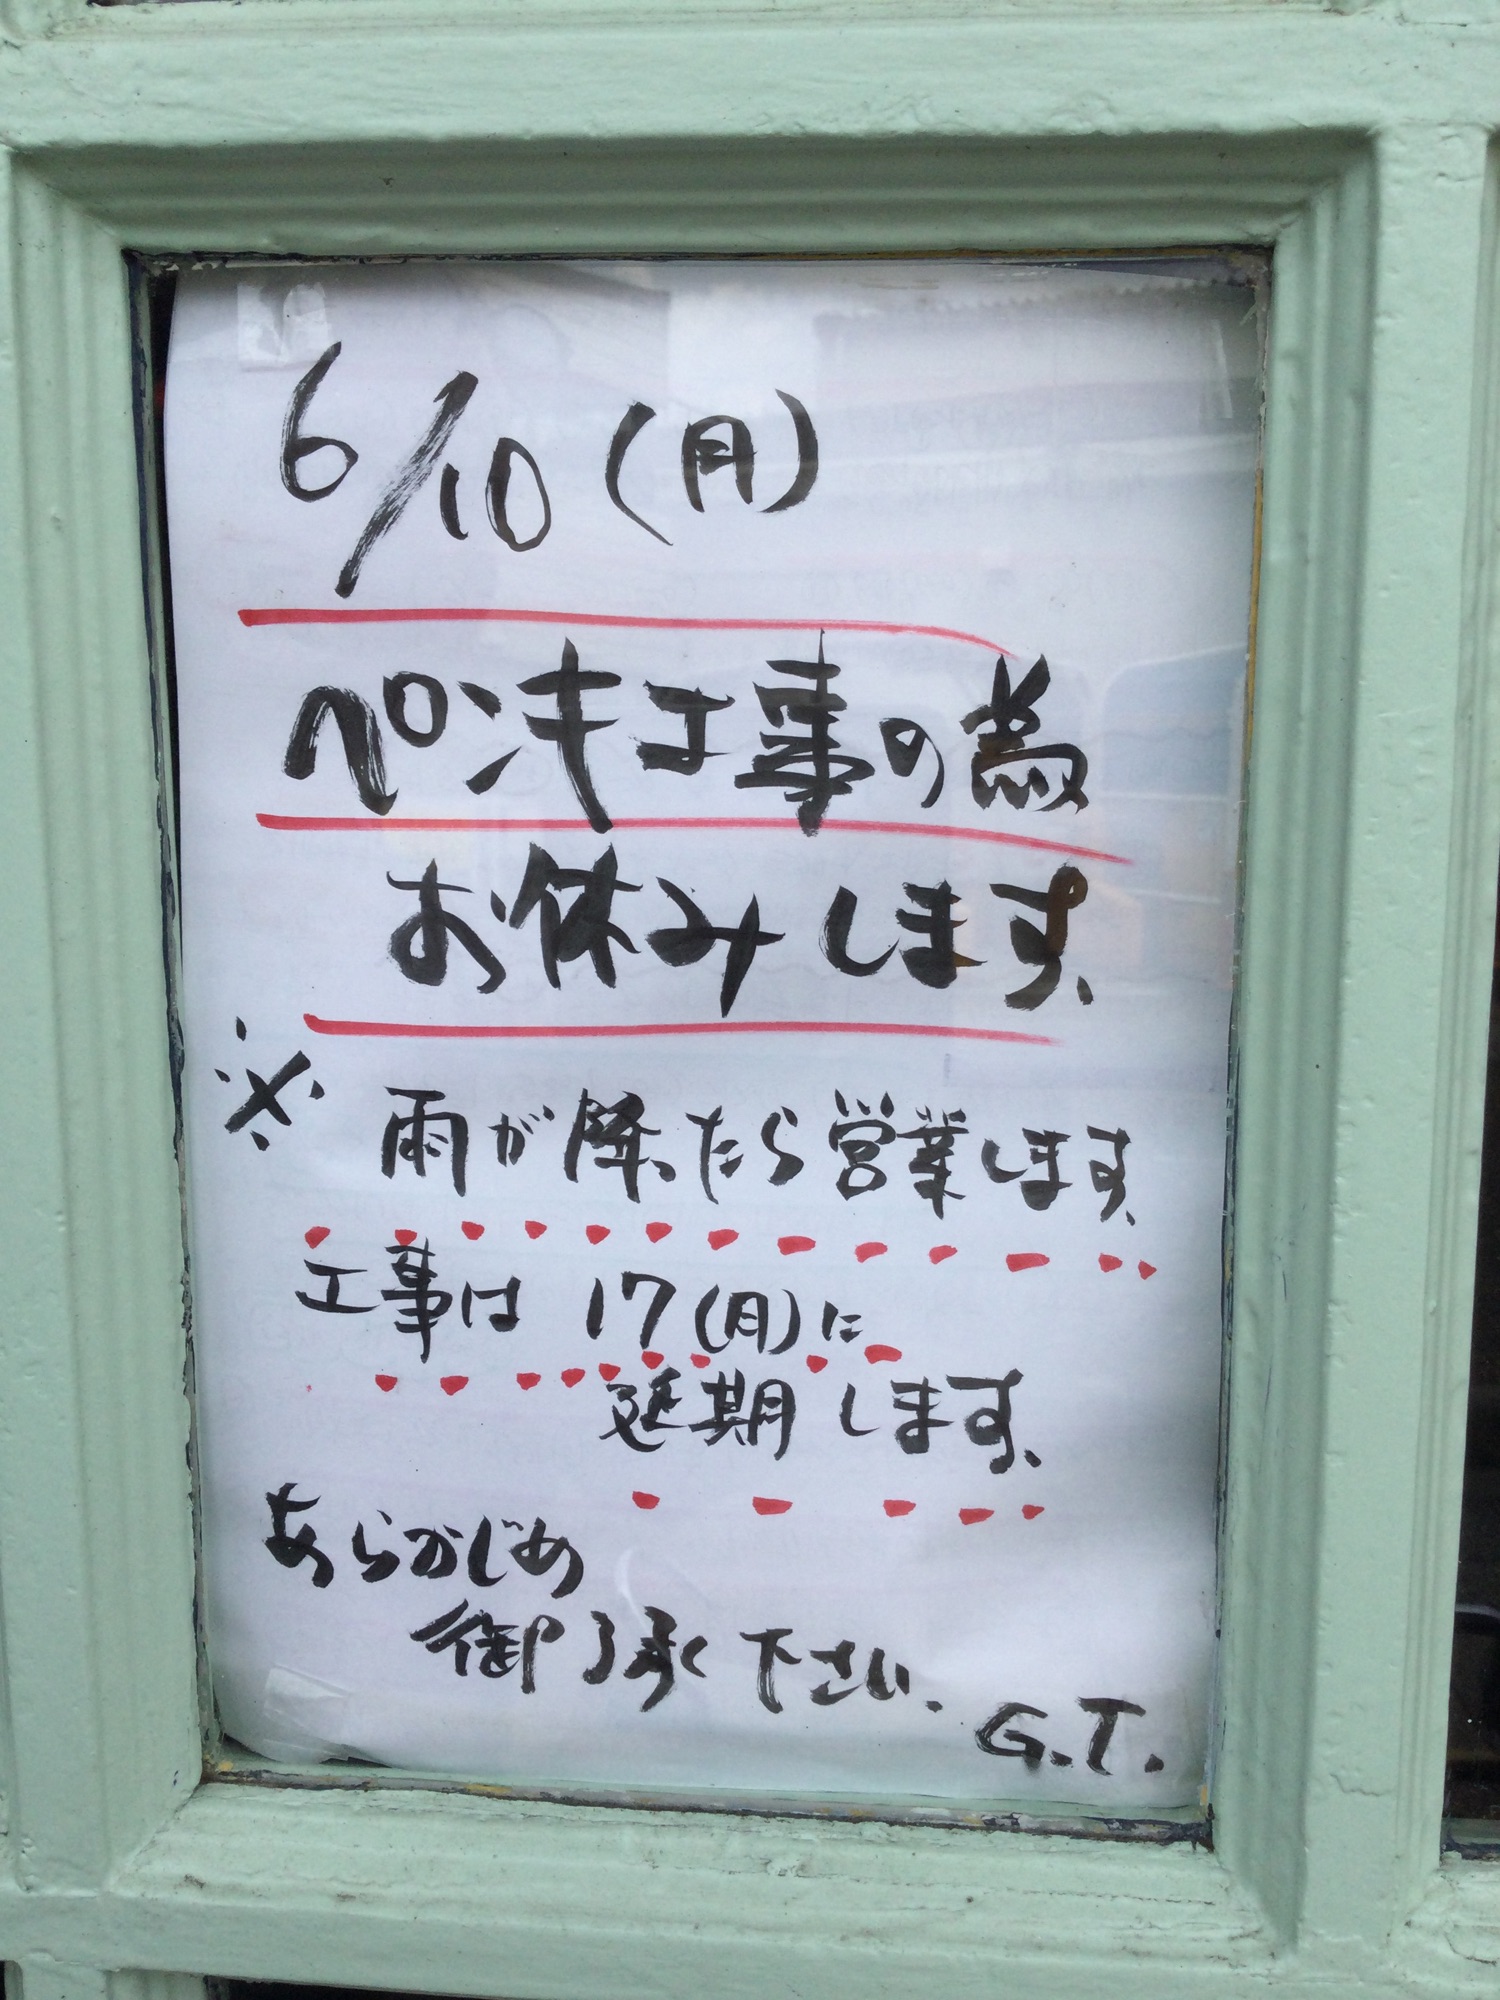 6/10(月)
ペンキ工事の為
お休みします、
※ 雨が降ったら営業します、
工事は 17(月)に
延期します、
あらかじめ
御了承下さい.
G.T.